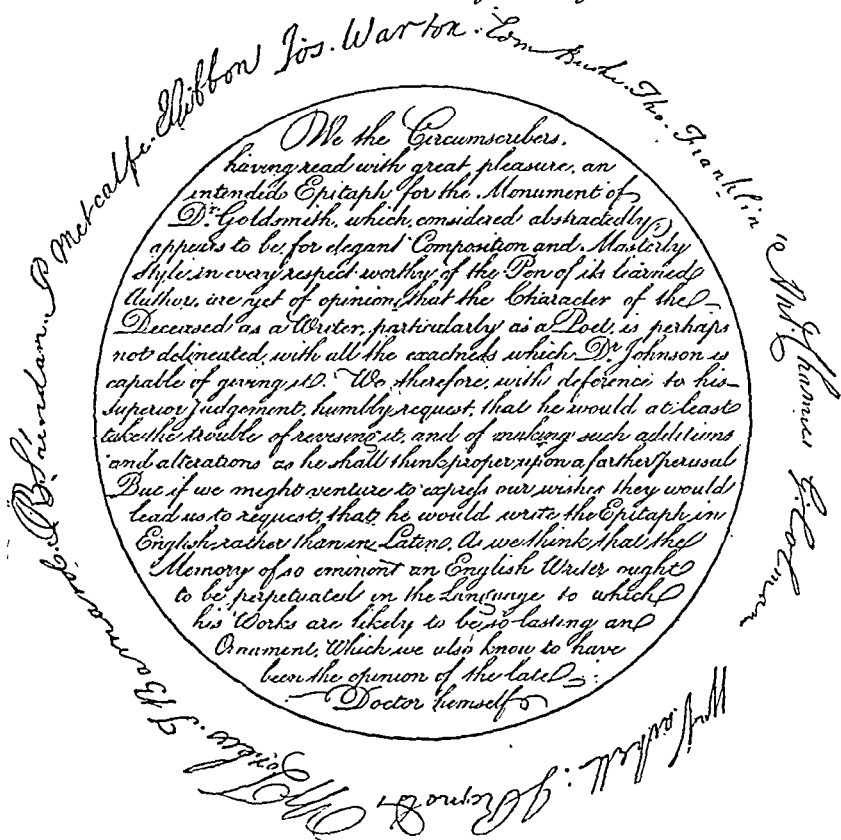 We the Circumscribers,
having read with great pleasure, an
intended Epitaph for the Monument of
Dr. Goldsmith, which, considered abstractedly,
appears to be, for elegant Composition and Masterly
Style, in every respect worthy of the Pen of its learned
Author, are yet of opinion, that the Character of the
Deceased as a Writer, particularly as a Poet, is perhaps
not delineated, with all the exactness which Dr. Johnson is
capable of giving it. We therefore, with deference to his
superior Judgement, humbly request, that he would at least
take the trouble of revising it, and of making such additions
and alterations as he shall think proper upon a farther perusal
But if we might venture to express our wishes they would
lead us to request, that he would write the Epitaph in
English rather than in Latin, As we think that the
Memory of so eminent an English Writer ought
to be perpetuated in the Language to which
his Works are likely to be so lasting an
Ornament, Which we also know to have
been the opinion of the late
Doctor himself
Jos. Warton.
Edm Burke.
Tho. Franklin
Ant. Chamier
G. Colman
W Vachell.
J Reynolds
W Forbes.
T Barnard
R B Sheridan.
P Metcalfe.
E Gibbon